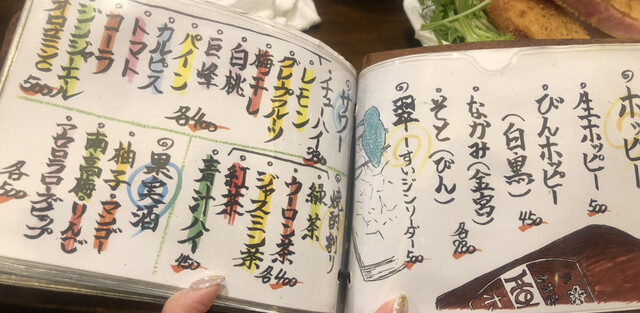 ホッピー
生ホッピー
500
びんホッピー
(白黒)
450
なかみ(金宮)
そと(びん)
各280
翠 -すいジンソーダ-
500
サワー
チューハイ
レモン
グレフルーツ
梅干し
白桃
巨峰
パイン
カルピス
トマト
コーラ
ジンジーエール
オロナミンC
500
各400
焼酎割り
緑茶
ウーロン茶
ジャスミン茶
紅茶
各400
青汁ハイ
450
果実酒
柚子
マンゴー
南高梅
りんご
アセロラ
ローズヒップ
各500